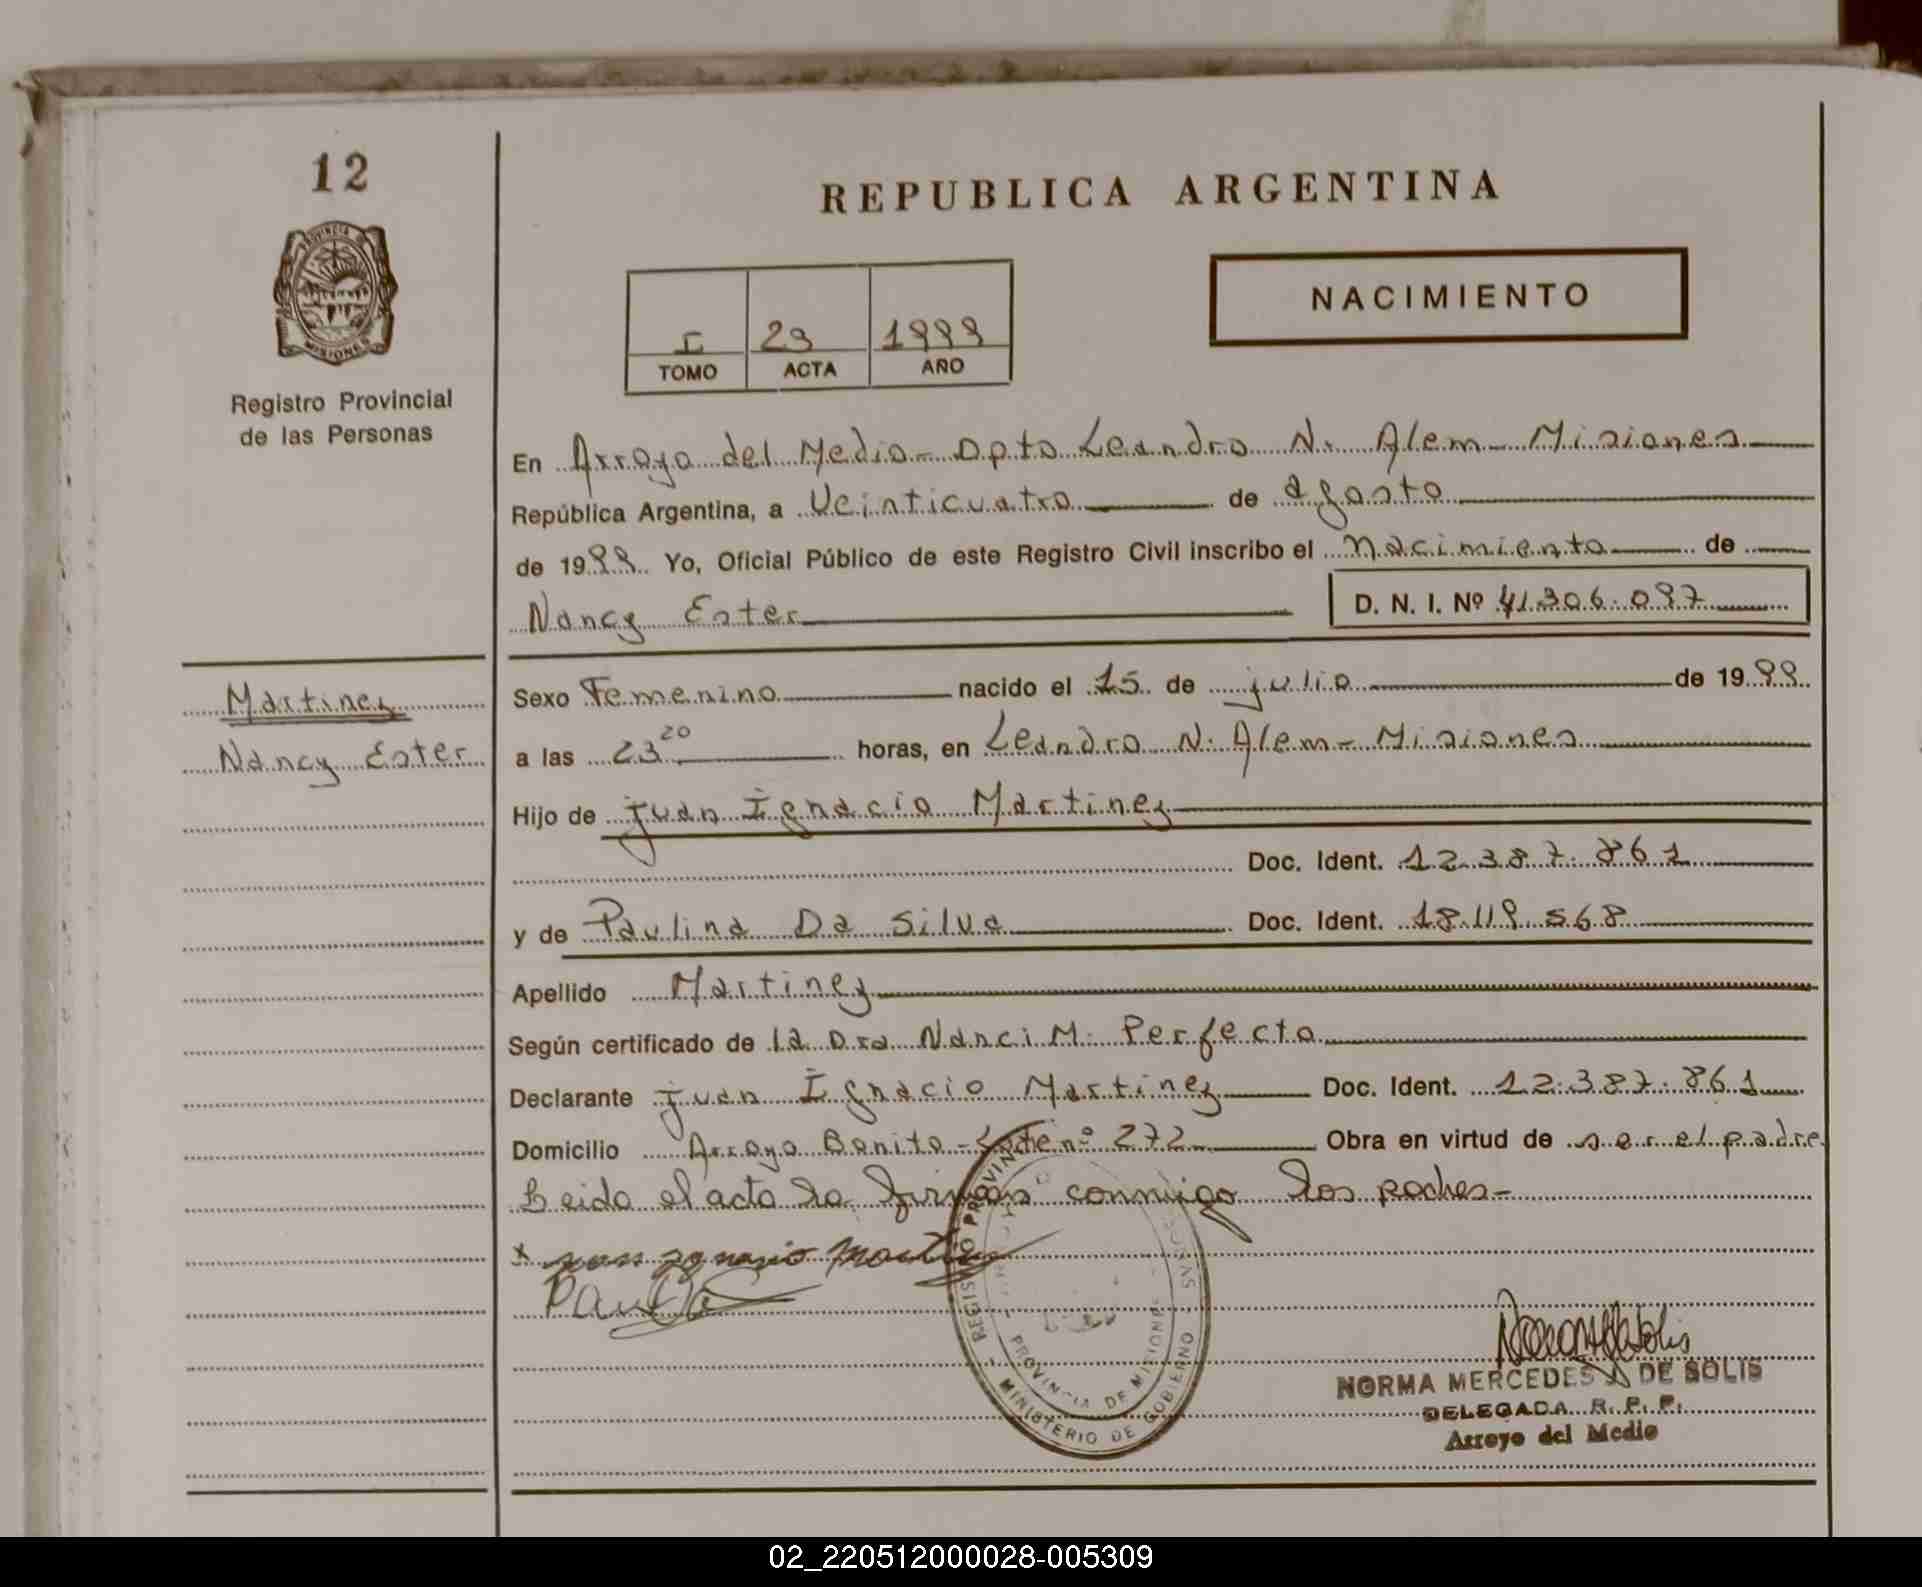 12
REPUBLICA ARGENTINA
PROVINCIA DE
MISIONES
Registro Provincial
de las Personas
NACIMIENTO
I 29 1999
TOMO ACTA AÑO
En Arroyo del Medio - Dpto Leandro N. Alem - Misiones
República Argentina, a Veinticuatro de agosto
de 1999 Yo, Oficial Público de este Registro Civil inscribo el nacimiento de
Nancy Ester D. N. I. Nº 41.306.097
Martinez
Nancy Ester
Sexo Femenino nacido el 15 de julio de 1999
a las 23 20 horas, en Leandro N. Alem - Misiones
Hijo de juan Ignacio Martinez
Doc. Ident. 12.387.861
y de Paulina Da Silva Doc. Ident. 18.119.568
Apellido Martinez
Según certificado de la Dra Nanci M. Perfecto
Declarante juan Ignacio Martinez Doc. Ident. 12.387.861
Domicilio Arroyo Bonito - Lote nº 272 Obra en virtud de ser el padre
Leido el acta la firman conmigo los padres -
x juan ignasio Martinez
REGISTRO PROVINCIAL
PROVINCIA DE MISIONES
MINISTERIO DE GOBIERNO
NORMA MERCEDES DE SOLIS
DELEGADA R. P. P.
Arroyo del Medio
02_220512000028-005309